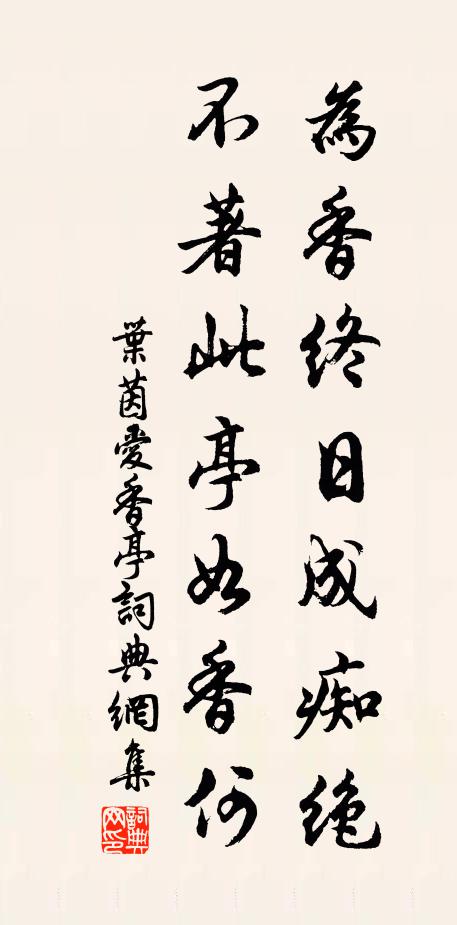 為香終日成痴絶
不著此亭如香何
葉茵愛香亭詞典網集
詞典
网印